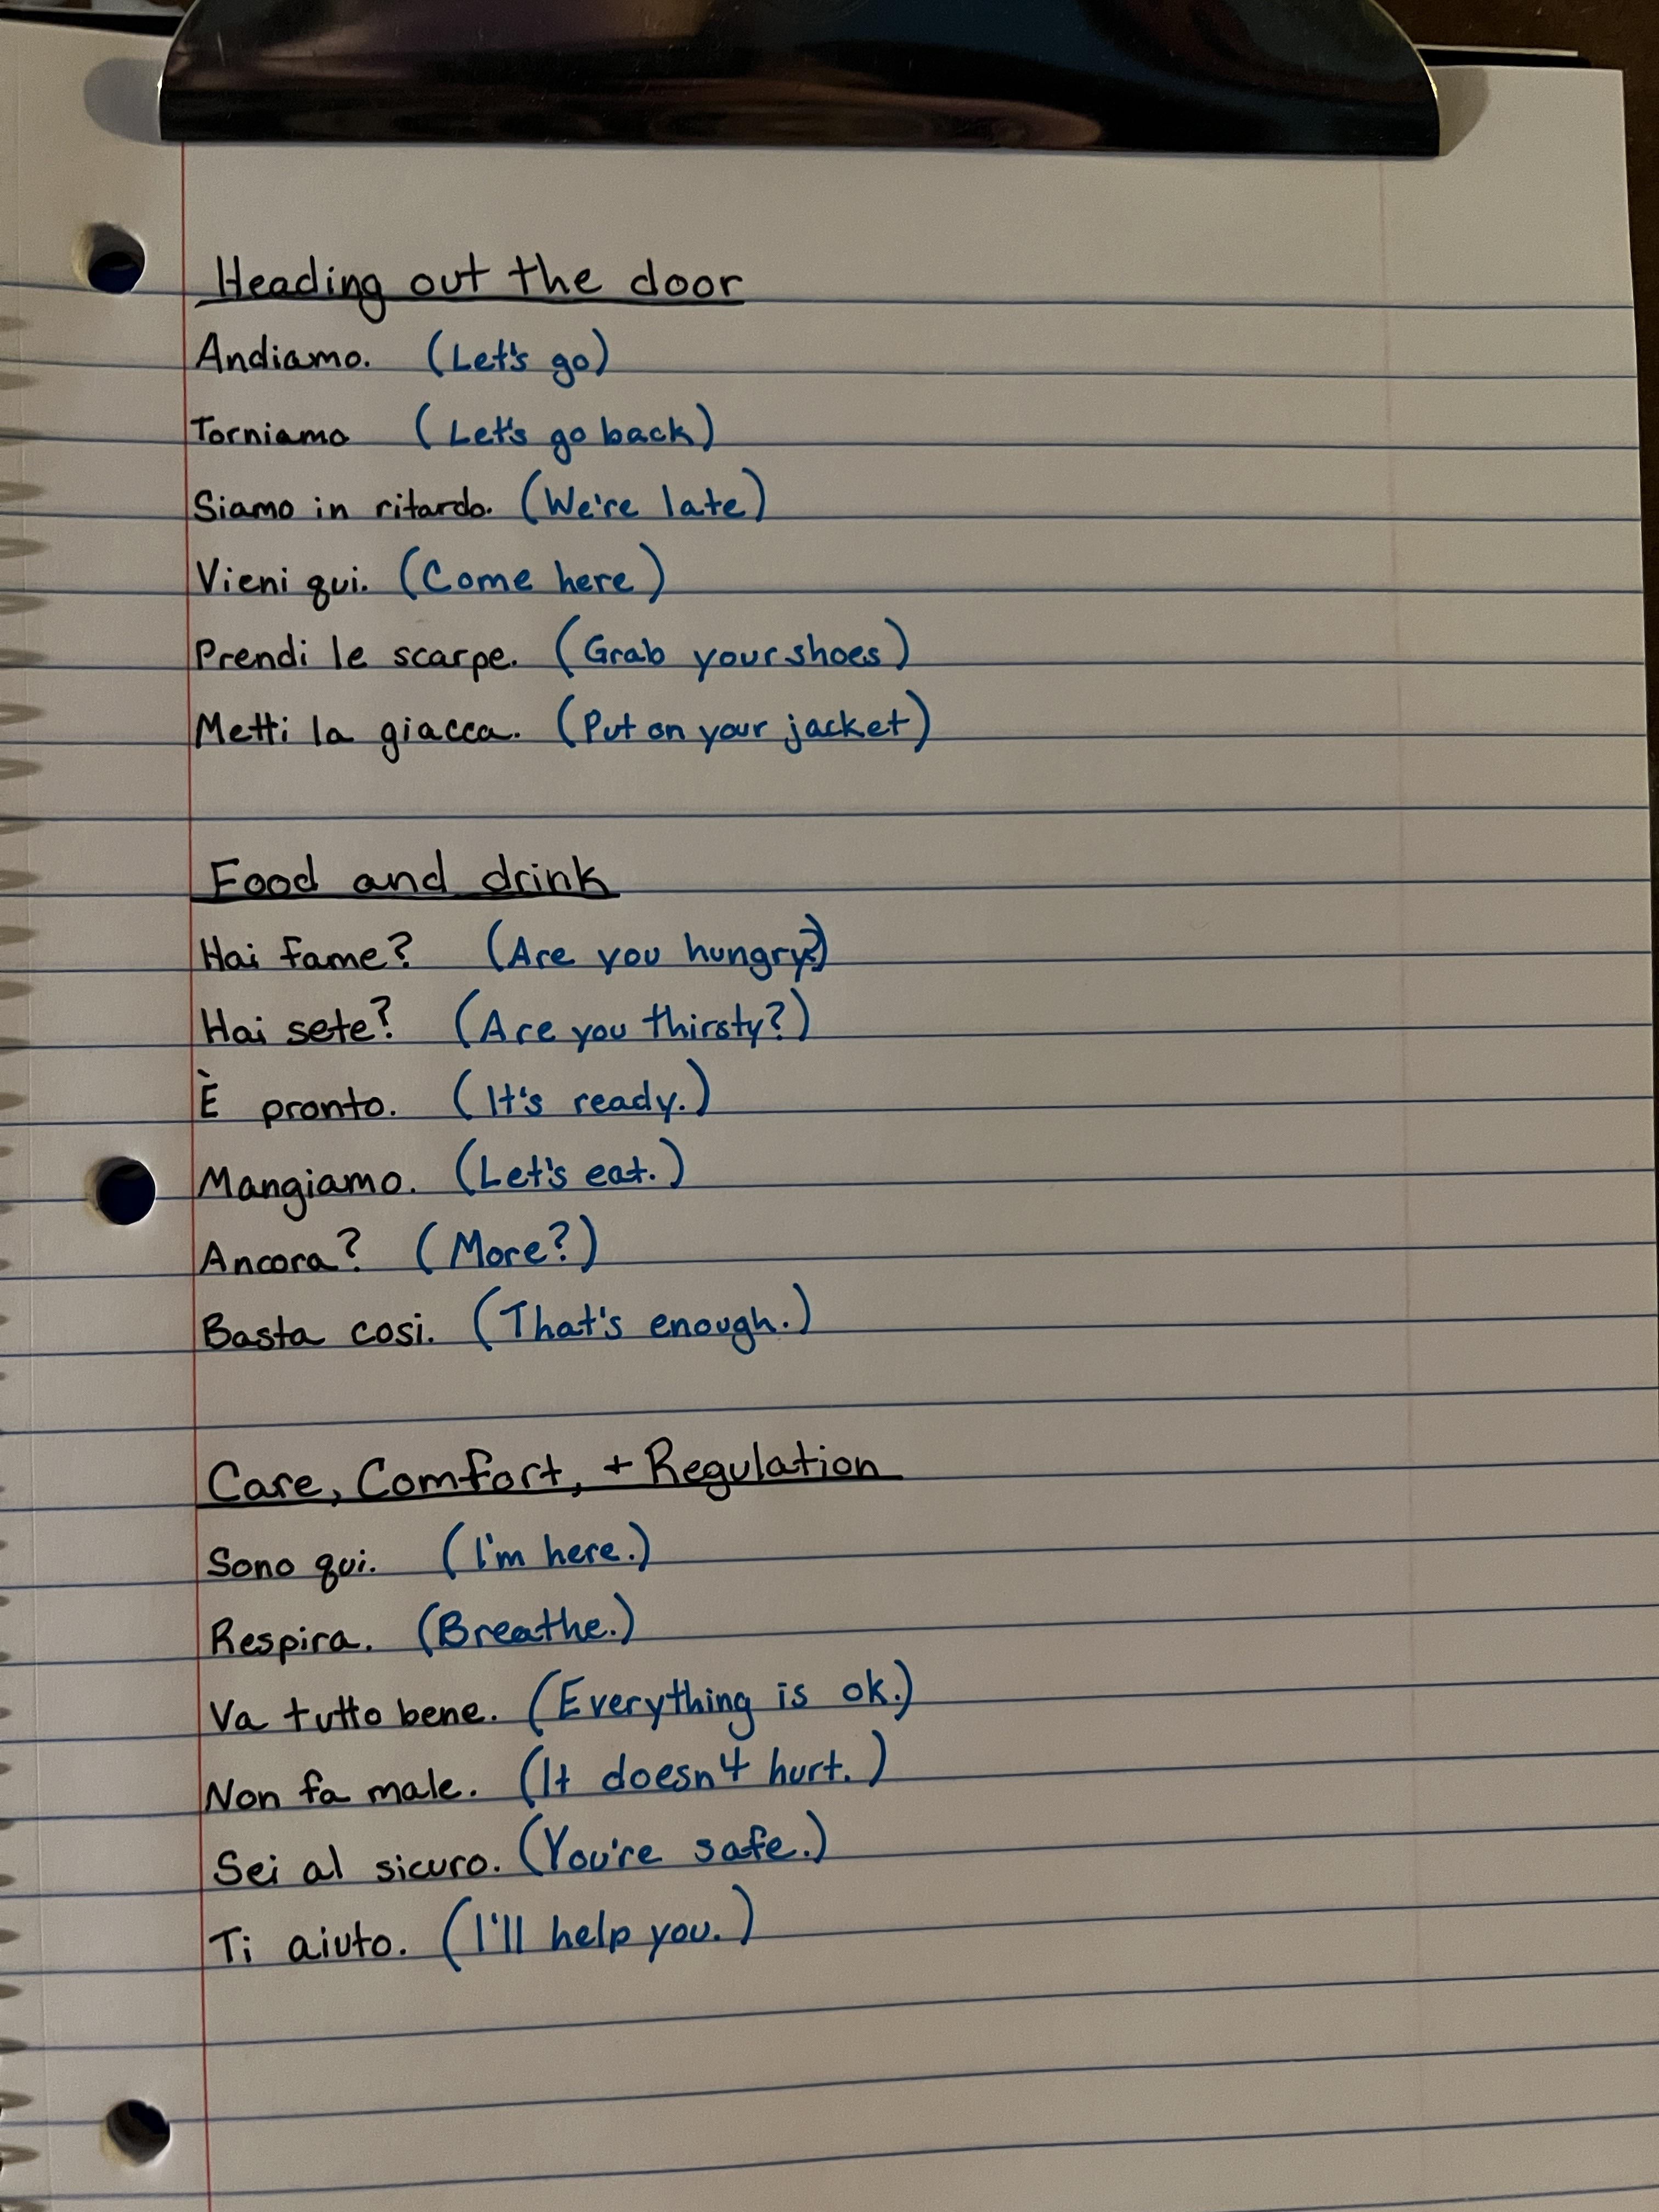 Heading out the door
Andiamo. (Let's go)
Torniamo (Let's go back)
Siamo in ritardo. (We're late)
Vieni qui. (Come here)
Prendi le scarpe. (Grab your shoes)
Metti la giacca. (Put on your jacket)
Food and drink
Hai fame? (Are you hungry?)
Hai sete? (Are you thirsty?)
È pronto. (It's ready.)
Mangiamo. (Let's eat.)
Ancora? (More?)
Basta cosi. (That's enough.)
Care, Comfort, + Regulation
Sono qui. (I'm here.)
Respira. (Breathe.)
Va tutto bene. (Everything is ok.)
Non fa male. (It doesn't hurt.)
Sei al sicuro. (You're safe.)
Ti aiuto. (I'll help you.)